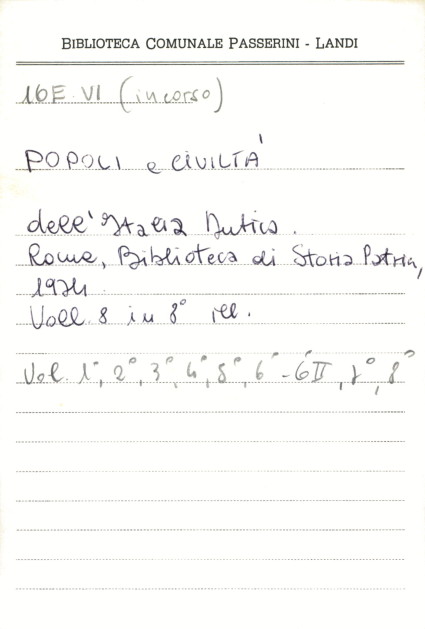 BIBLIOTECA COMUNALE PASSERINI - LANDI
16E VI (in corso)
POPOLI e CIVILTÀ
dell'Italia Antica.
Roma, Biblioteca di Storia Patria,
1974
Voll. 8 in 8° ill.
Vol. 1°, 2°, 3°, 4°, 5°, 6° - 6°II, 7°, 8°